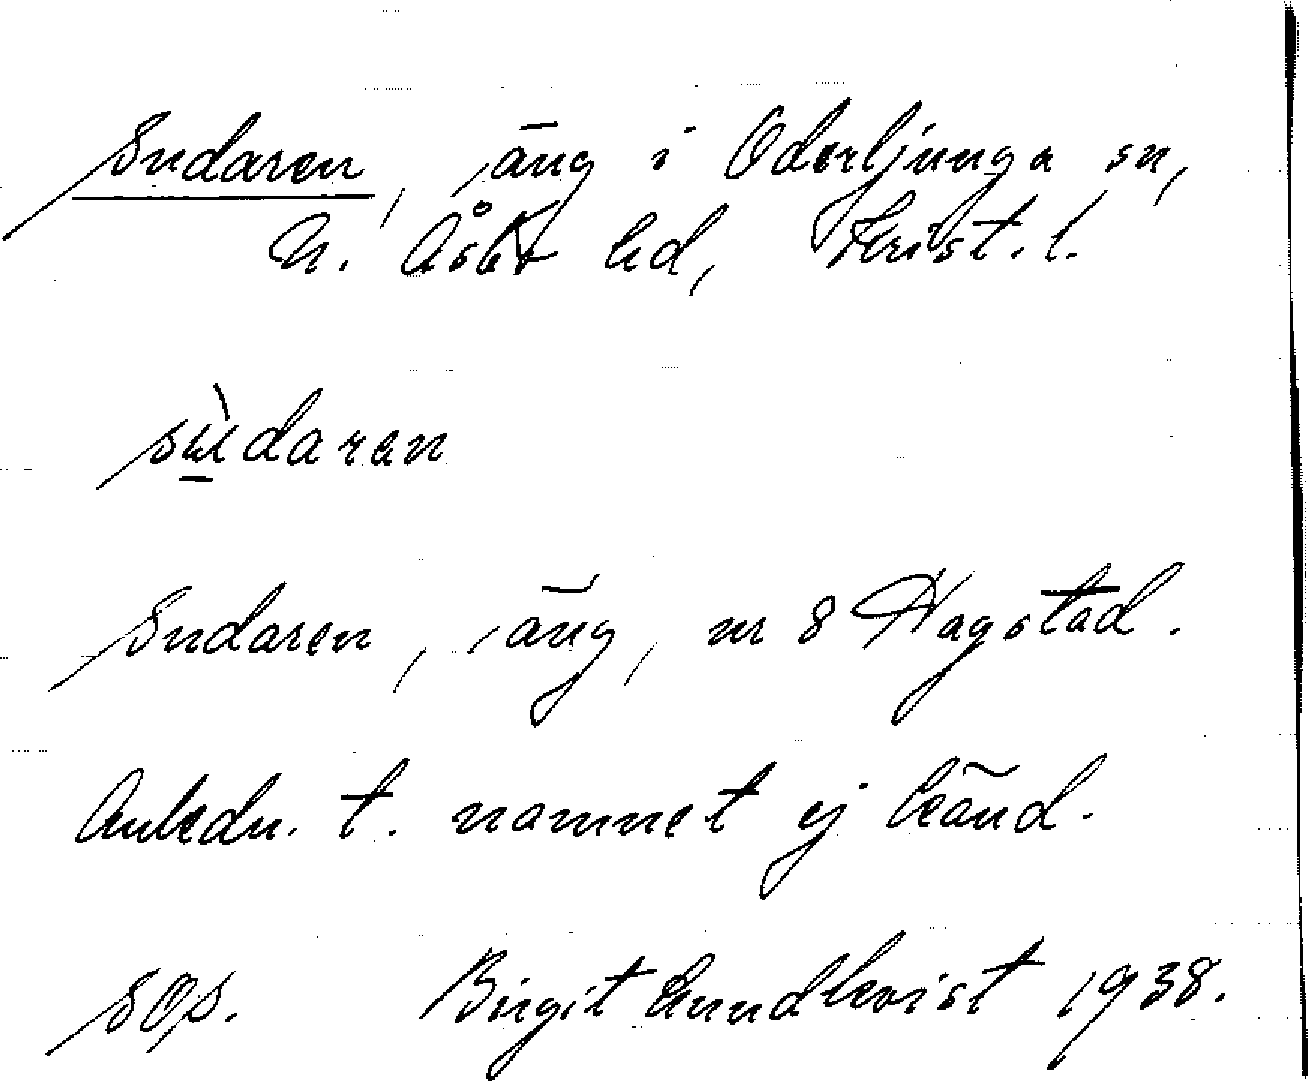 Sudaren, äng i Oderljunga sn,
N. Åsbo hd, Krist. l.
sùdaren
Sudaren, äng, nr 8 Hagstad.
Anledn. t. namnet ej känd.
SOS. Birgit Lundkvist 1938.